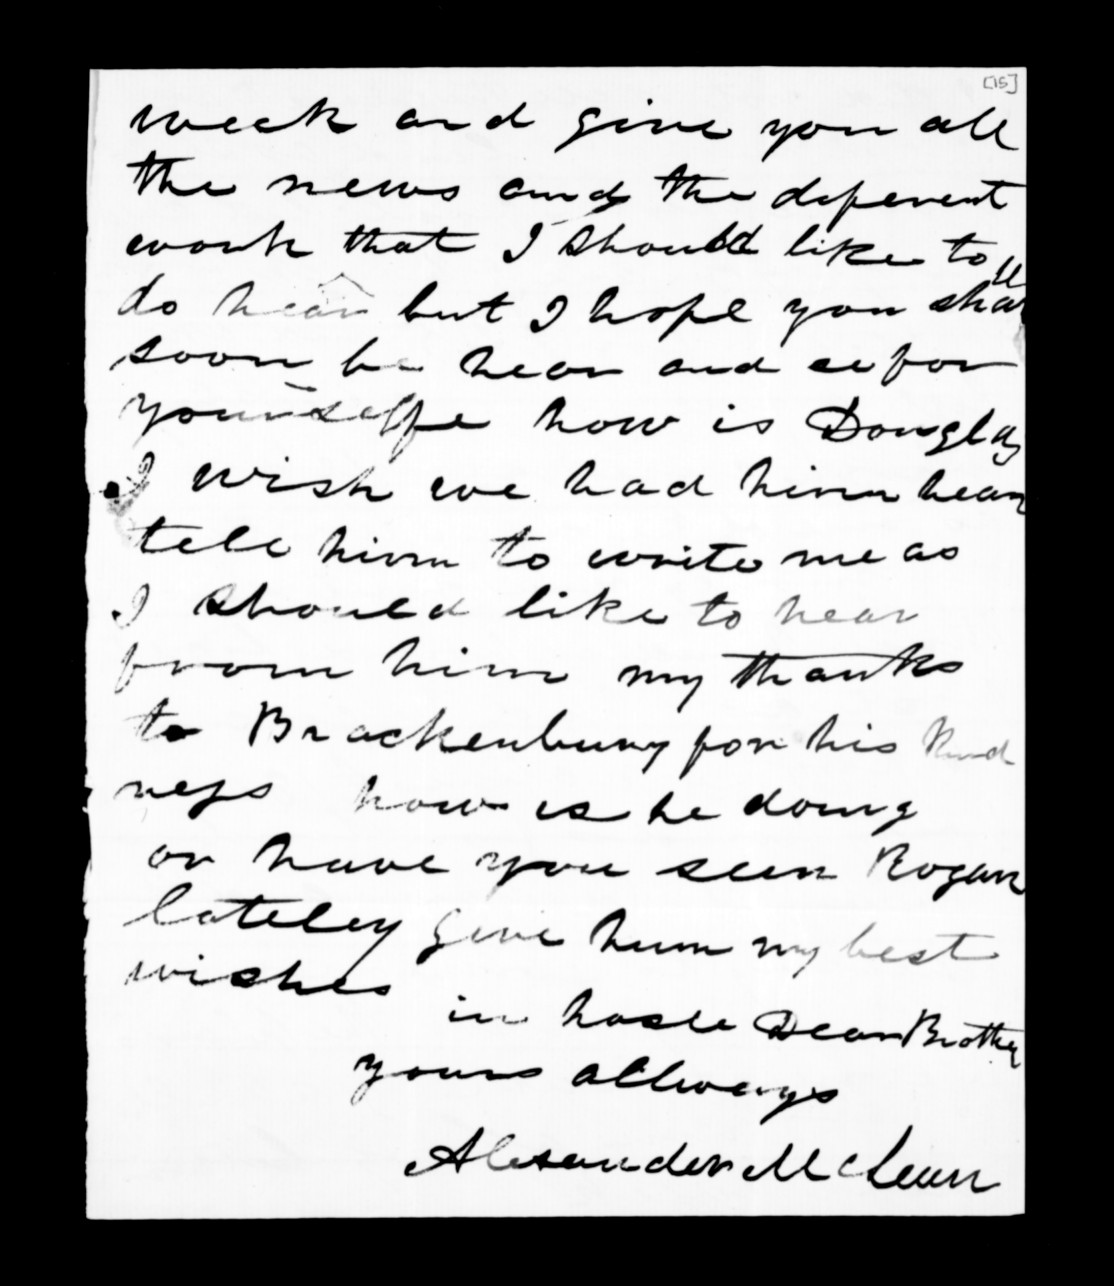 [15]
week and give you all
the news and the diferent
work that I should like to
do hear but I hope you shall
soon be hear and se for
yourselfe how is Douglas
I wish we had him hear
tele him to write me as
I should like to hear
from him my thanks
to Brackenbury for his kind
ness how is he doing
or have you seen Rogan
lateley give him my best
wishes
in hasle Dear Brother
yours allways
Alexander McLean